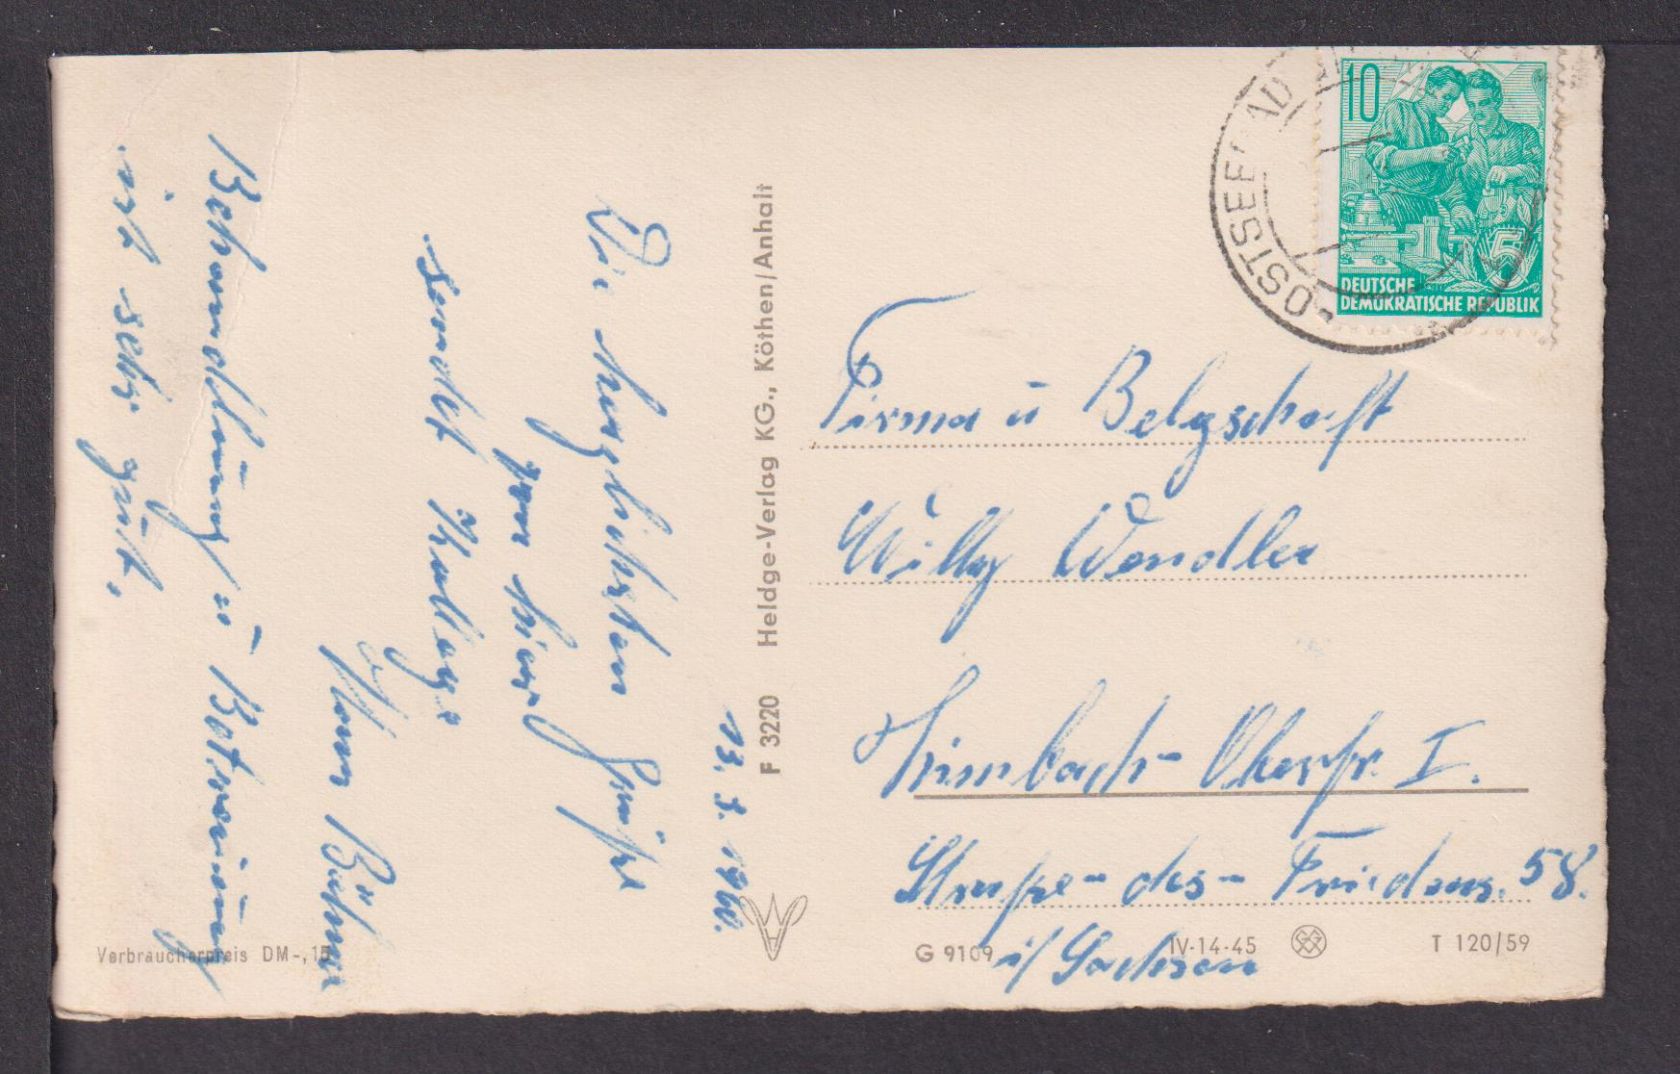 13. 3. 1960.
Die herzlichsten Grüße
von hier
sendet Kollege
Herm Böhme
Behandlung u Betreuung
ist sehr gut.
F 3220 Heldge-Verlag KG., Köthen/Anhalt
OSTSEEBAD
10
5
DEUTSCHE
DEMOKRATISCHE REPUBLIK
Firma u Belegschaft
Willy Wendler
Limbach-Oberfr. I.
Straße-des-Friedens. 58.
i/ Sachsen
Verbraucherpreis DM -,15
G 9109 IV-14-45 T 120/59